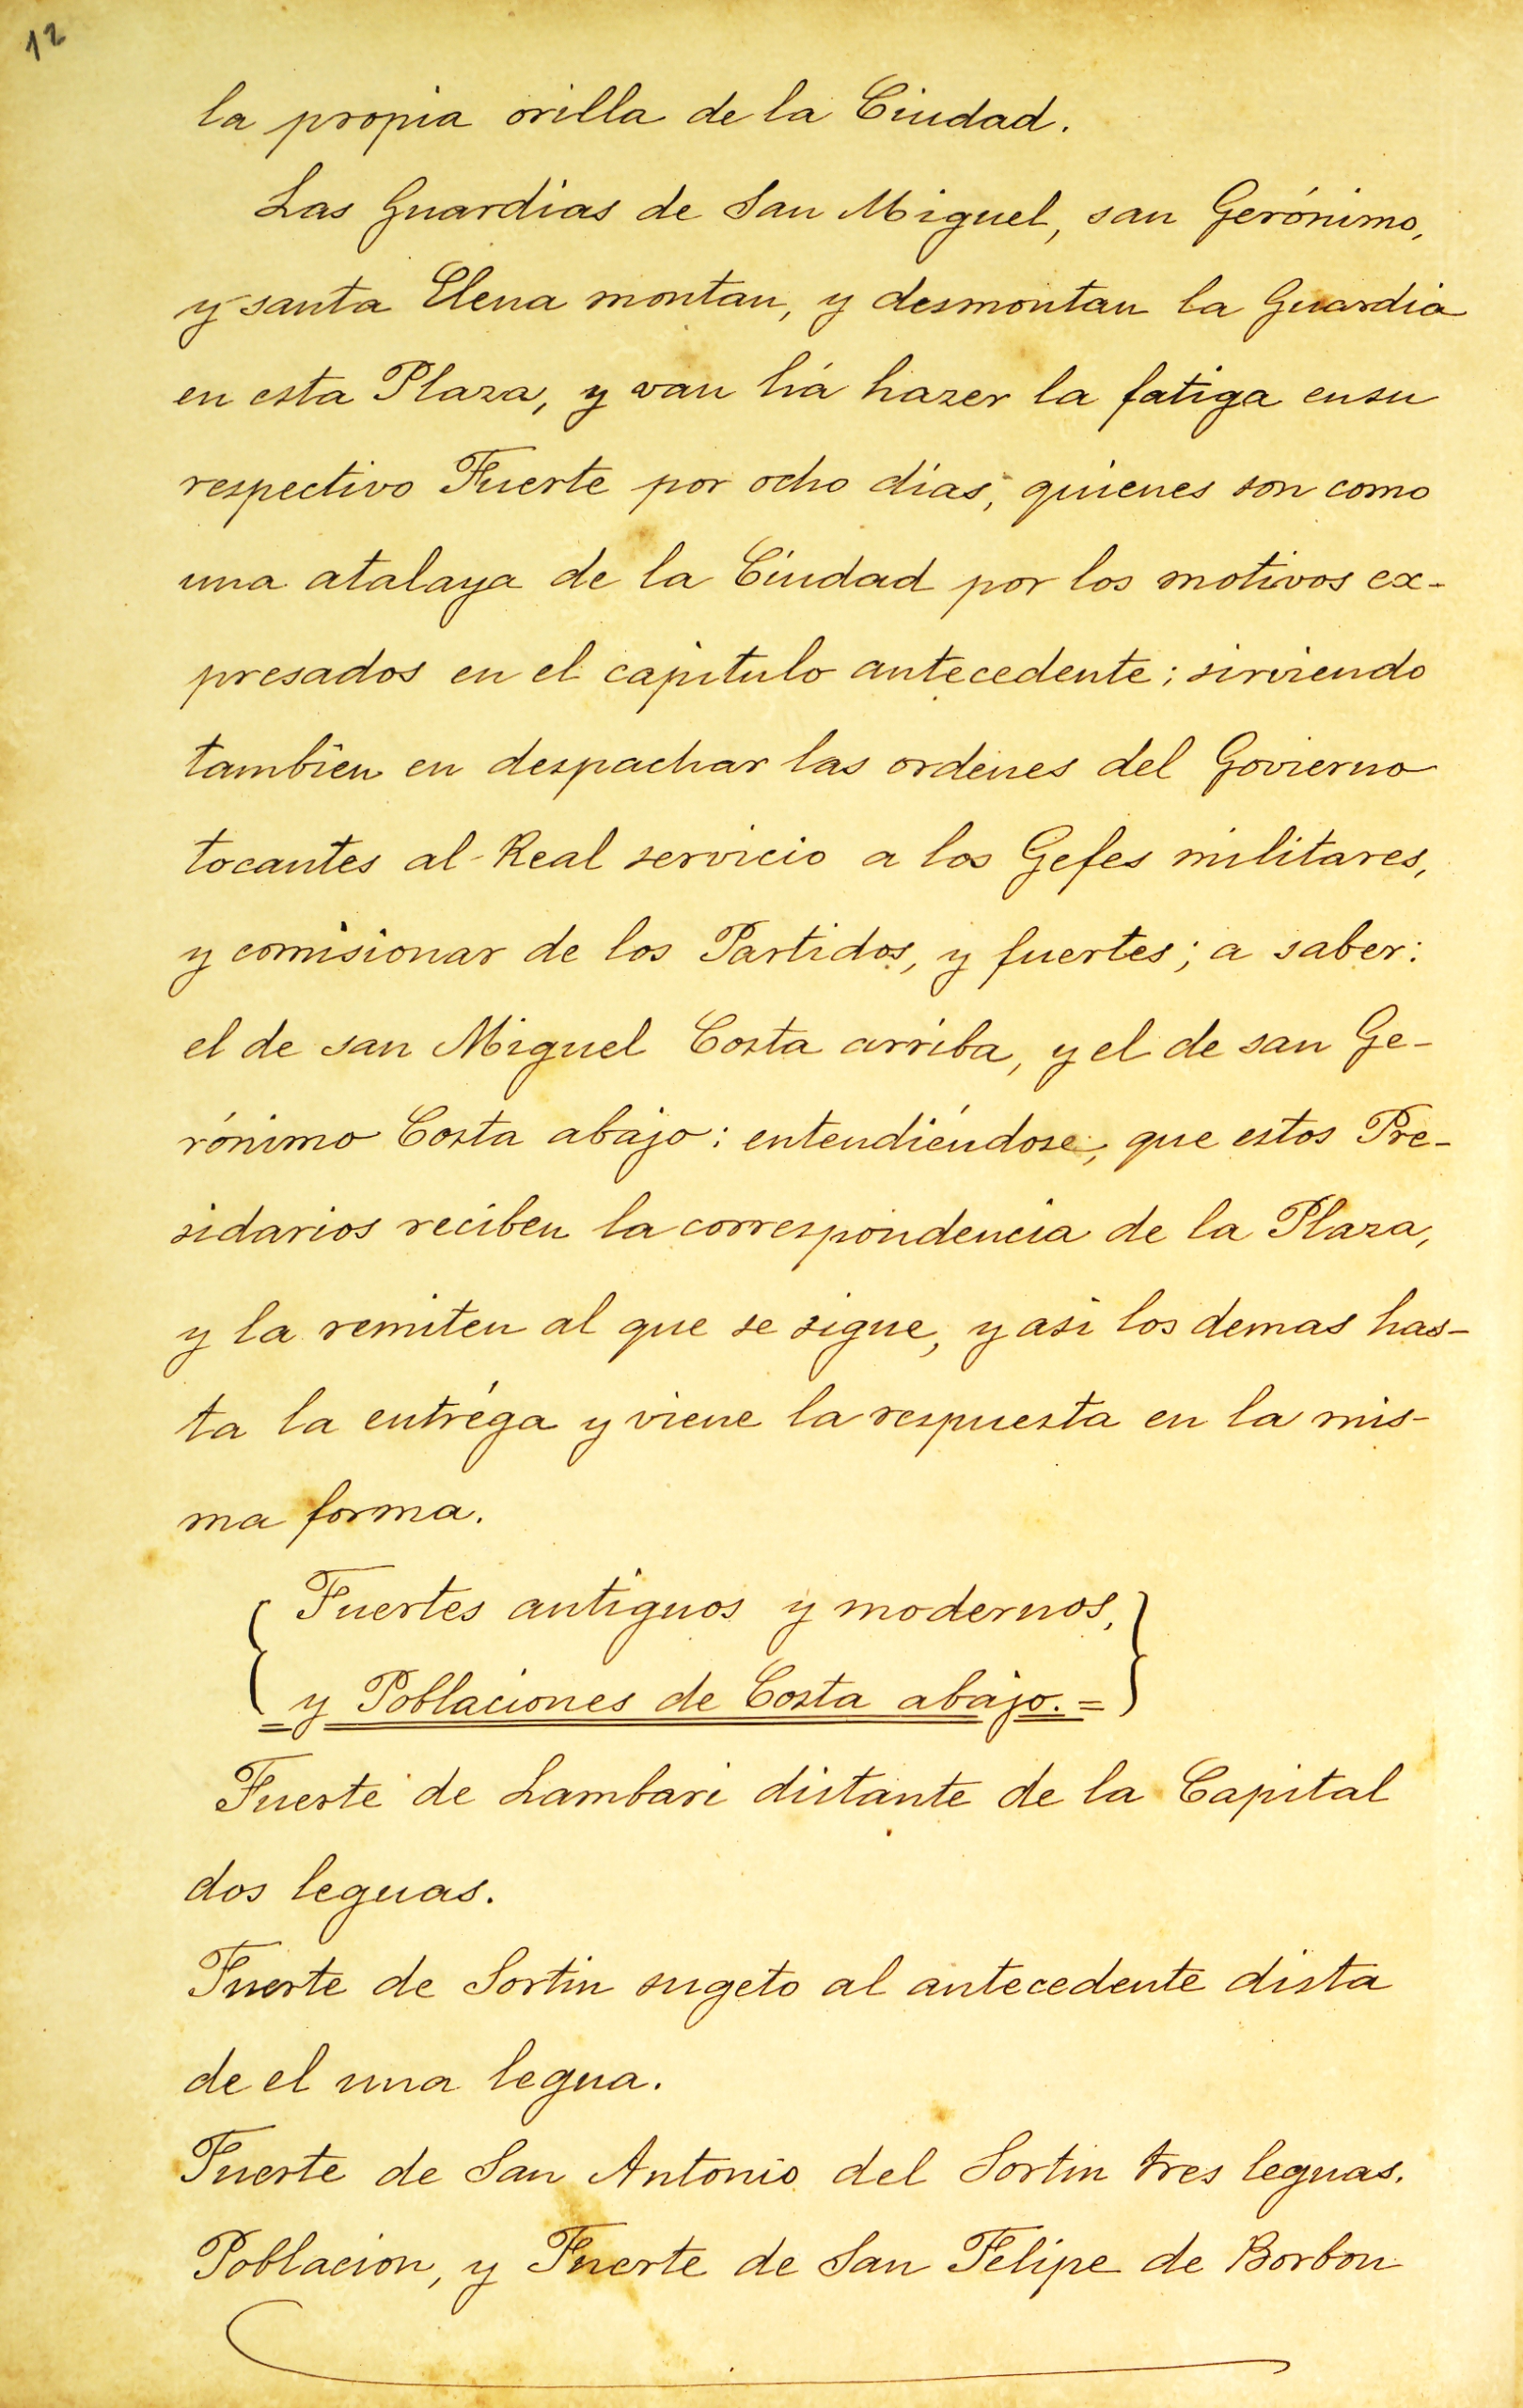 12
la propia orilla de la Ciudad.
Las Guardias de San Miguel, san Gerónimo,
y santa Elena montan, y desmontan la Guardia
en esta Plaza, y van há hazer la fatiga en su
respectivo Fuerte por ocho dias, quienes son como
una atalaya de la Ciudad por los motivos ex-
presados en el capitulo antecedente; sirviendo
tambien en despachar las ordenes del Govierno
tocantes al Real servicio a los Gefes militares,
y comisionar de los Partidos, y fuertes; a saber:
el de san Miguel Costa arriba, y el de san Ge-
rónimo Costa abajo: entendiéndose, que estos Pre-
sidarios reciben la correspondencia de la Plaza,
y la remiten al que se sigue, y asi los demas has-
ta la entréga y viene la respuesta en la mis-
ma forma.
{ Fuertes antiguos y modernos, }
= y Poblaciones de Costa abajo. =
Fuerte de Lambaré distante de la Capital
dos leguas.
Fuerte de Sortin sugeto al antecedente dista
de el una legua.
Fuerte de San Antonio del Sortin tres leguas.
Poblacion, y Fuerte de San Felipe de Borbon